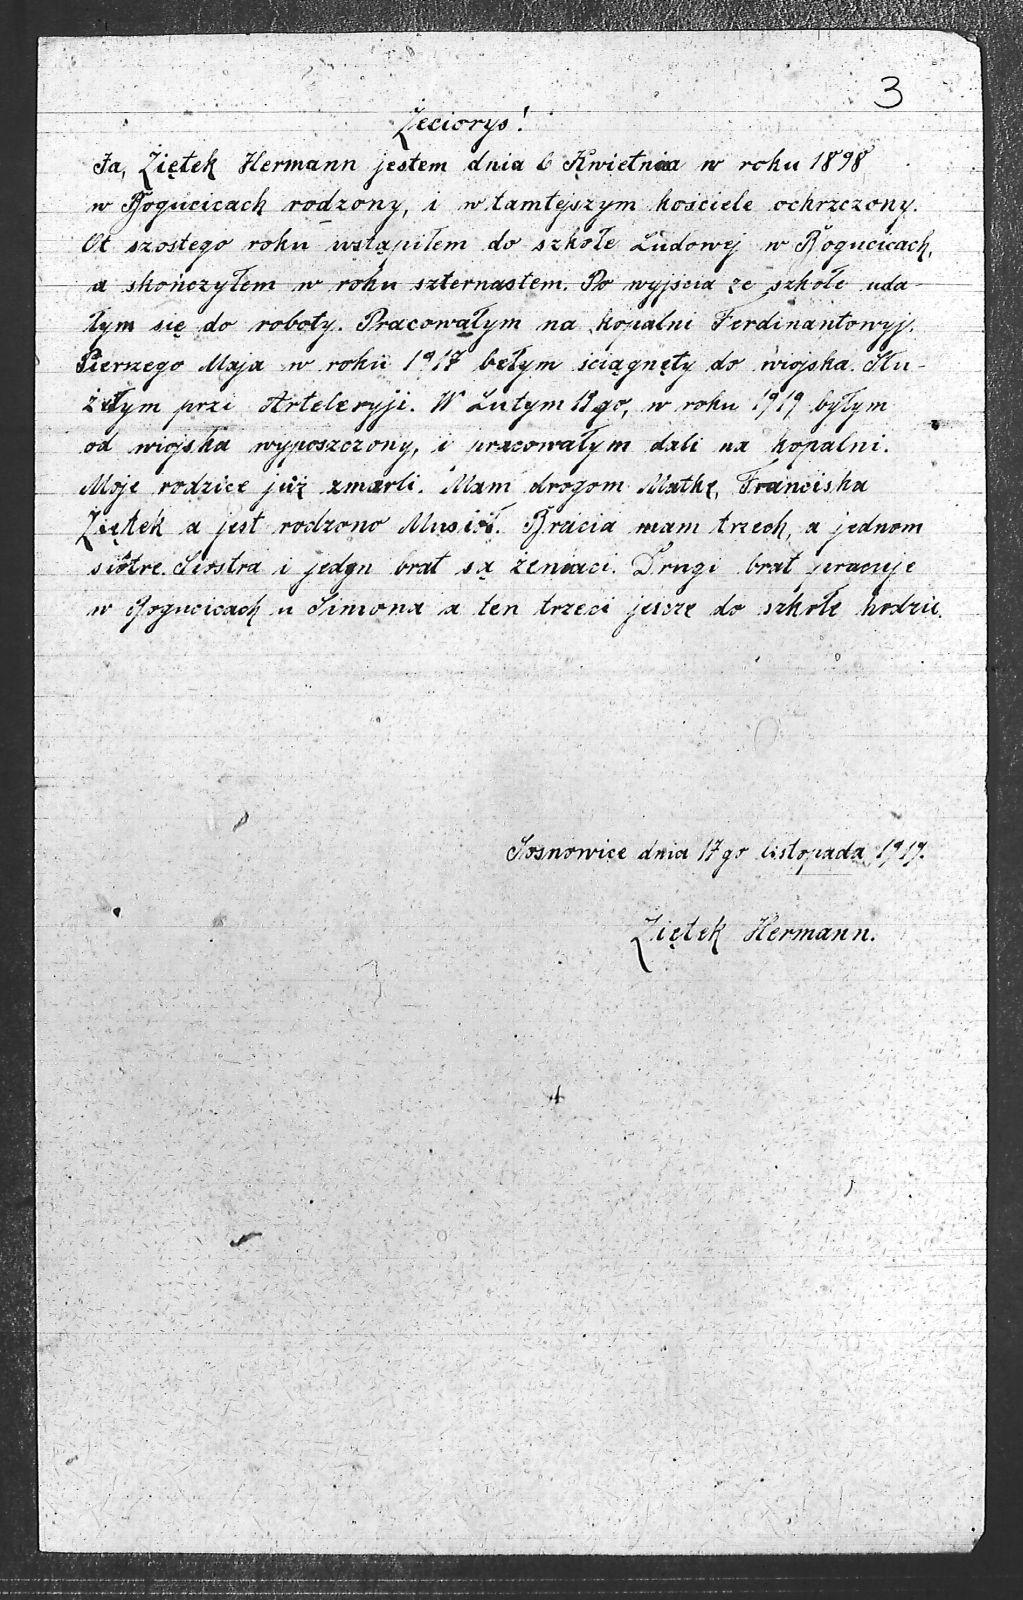 3
Żeciorys!
Ja, Ziętek Hermann jestem dnia 6 Kwietnia w roku 1898
w Bogucicach rodzony, i w tamtejszym kościele ochrzczony.
Ot szostego roku wstąpiłem do szkołe Ludowej w Bogucicach,
a skończyłem w roku szternastem. Po wyjścia ze szkołe uda-
łym się do roboty. Pracowałym na kopalni Ferdinantowyj.
Pierszego Maja w roku 1917 bełym ściągnęty do wiojska. Słu-
żełym przi Arteleryji. W Lutym 12go, w roku 1919 byłym
od wiojska wyposzczony, i pracowałym dali na kopalni.
Moje rodzice już zmarli. Mam drogom Matkę, Franciska
Ziętek a jest rodzono Musioł. Bracia mam trzech, a jednom
siostre. Siostra i jeden brat są żeniaci. Drugi brat pracuje
w Bogucicach u Simona a ten trzeci jeszce do szkołe hodzie.
Sosnowice dnia 17go listopada 1919.
Ziętek Hermann.